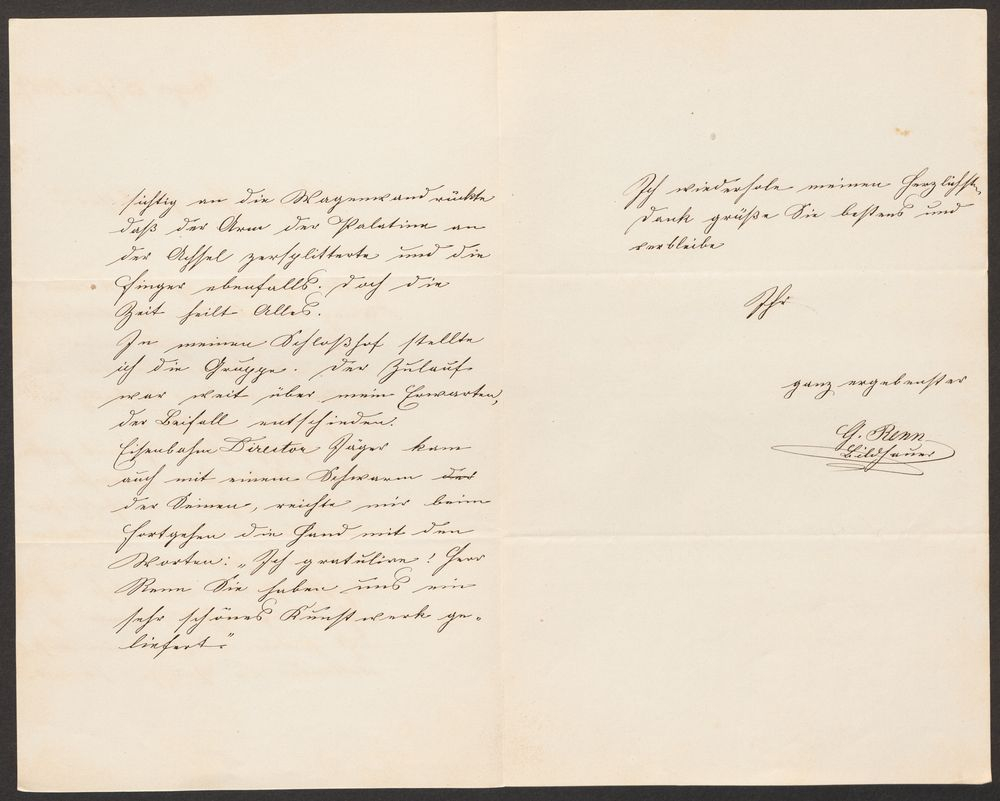 sichtig an die Wagenwand rückte
daß der Arm der Palatina an
der Achsel zersplitterte und die
Finger ebenfalls. Doch die
Zeit heilt Alles.
In meinen Schloßhof stellte
ich die Gruppe. Der Zulauf
war weit über mein Erwarten,
der Beifall entschieden.
Eisenbahn Director Jäger kam
auch mit einem Schwarm der
der Seinen, reichte mir beim
Fortgehen die Hand mit den
Worten: „Ich gratulire! Herr
Renn Sie haben uns ein
sehr schönes Kunstwerk ge-
liefert“
Ich wiederhole meinen herzlichst
Dank grüße Sie bestens und
verbleibe
Ihr
ganz ergebenster
G. Renn
Bildhauer